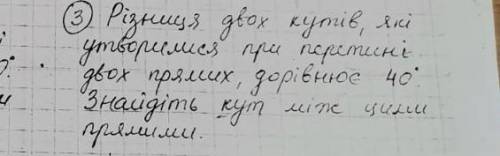 ③ Різниця двох кутів, які
утворилися при перетині
двох прямих, дорівнює 40°
Знайдіть кут між цими
прямими.